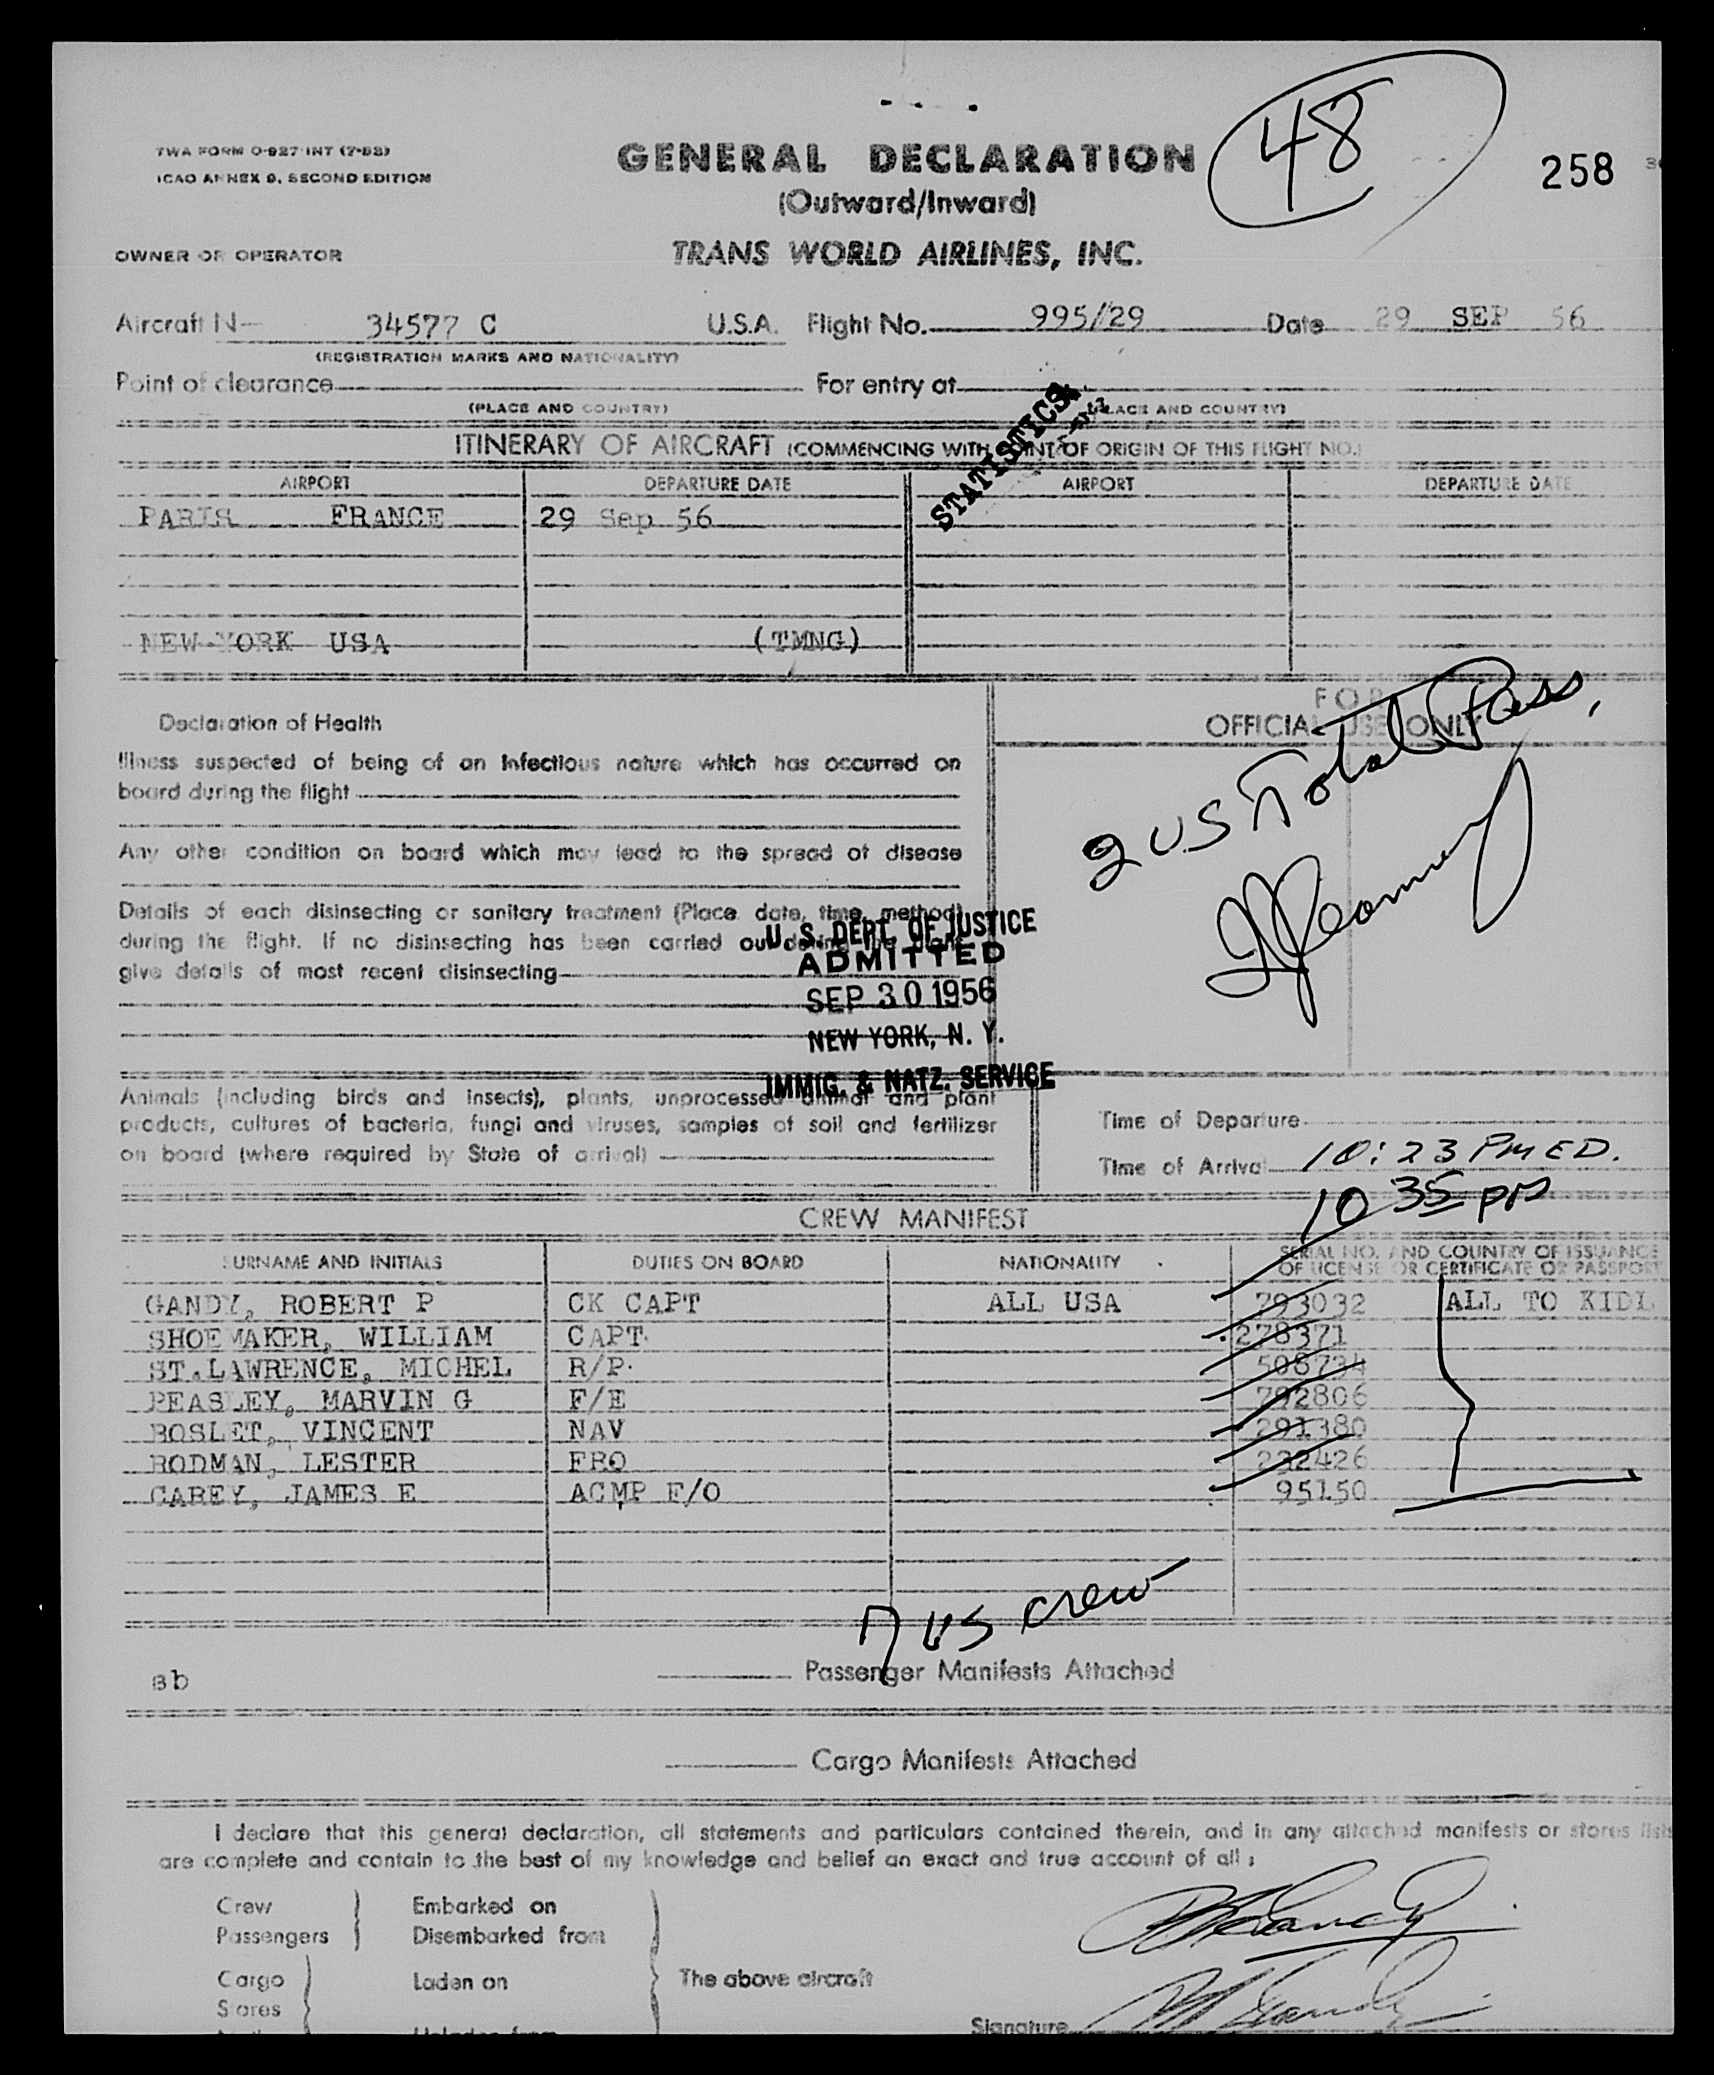 48
258
TWA FORM O-927 INT (7-52)
ICAO ANNEX 9, SECOND EDITION
GENERAL DECLARATION
(Outward/Inward)
OWNER OR OPERATOR
TRANS WORLD AIRLINES, INC.
Aircraft N— 34577 C U.S.A. Flight No. 995/29 Date 29 SEP 56
(REGISTRATION MARKS AND NATIONALITY)
Point of clearance For entry at
(PLACE AND COUNTRY) (PLACE AND COUNTRY)
STATISTICS
ITINERARY OF AIRCRAFT (COMMENCING WITH POINT OF ORIGIN OF THIS FLIGHT NO.)
AIRPORT DEPARTURE DATE AIRPORT DEPARTURE DATE
PARIS FRANCE 29 Sep 56
NEW-YORK USA (TMNG)
Declaration of Health
FOR
OFFICIAL USE ONLY
Illness suspected of being of an infectious nature which has occurred on
board during the flight
2 US Total Pass,
Any other condition on board which may lead to the spread of disease
Details of each disinsecting or sanitary treatment (Place, date, time, method)
during the flight. If no disinsecting has been carried out during the flight
give details of most recent disinsecting
U. S. DEPT. OF JUSTICE
ADMITTED
SEP 30 1956
NEW YORK, N. Y.
IMMIG. & NATZ. SERVICE
Animals (including birds and insects), plants, unprocessed animal and plant
products, cultures of bacteria, fungi and viruses, samples of soil and fertilizer
on board (where required by State of arrival)
Time of Departure
Time of Arrival 10:23 PM ED.
10 35 pm
CREW MANIFEST
SURNAME AND INITIALS DUTIES ON BOARD NATIONALITY SERIAL NO. AND COUNTRY OF ISSUANCE
OF LICENSE OR CERTIFICATE OR PASSPORT
GANDY, ROBERT P CK CAPT ALL USA 793032 ALL TO KIDL
SHOEMAKER, WILLIAM CAPT. 278371
ST.LAWRENCE, MICHEL R/P. 508734
PEASLEY, MARVIN G F/E 792806
BOSLET, VINCENT NAV 291380
RODMAN, LESTER FRO 232426
CAREY, JAMES E ACMP F/O 95150
7 US crew
ab
Passenger Manifests Attached
Cargo Manifests Attached
I declare that this general declaration, all statements and particulars contained therein, and in any attached manifests or stores lists
are complete and contain to the best of my knowledge and belief an exact and true account of all :
Crew Embarked on
Passengers Disembarked from
Cargo Laden on The above aircraft
Stores
Signature